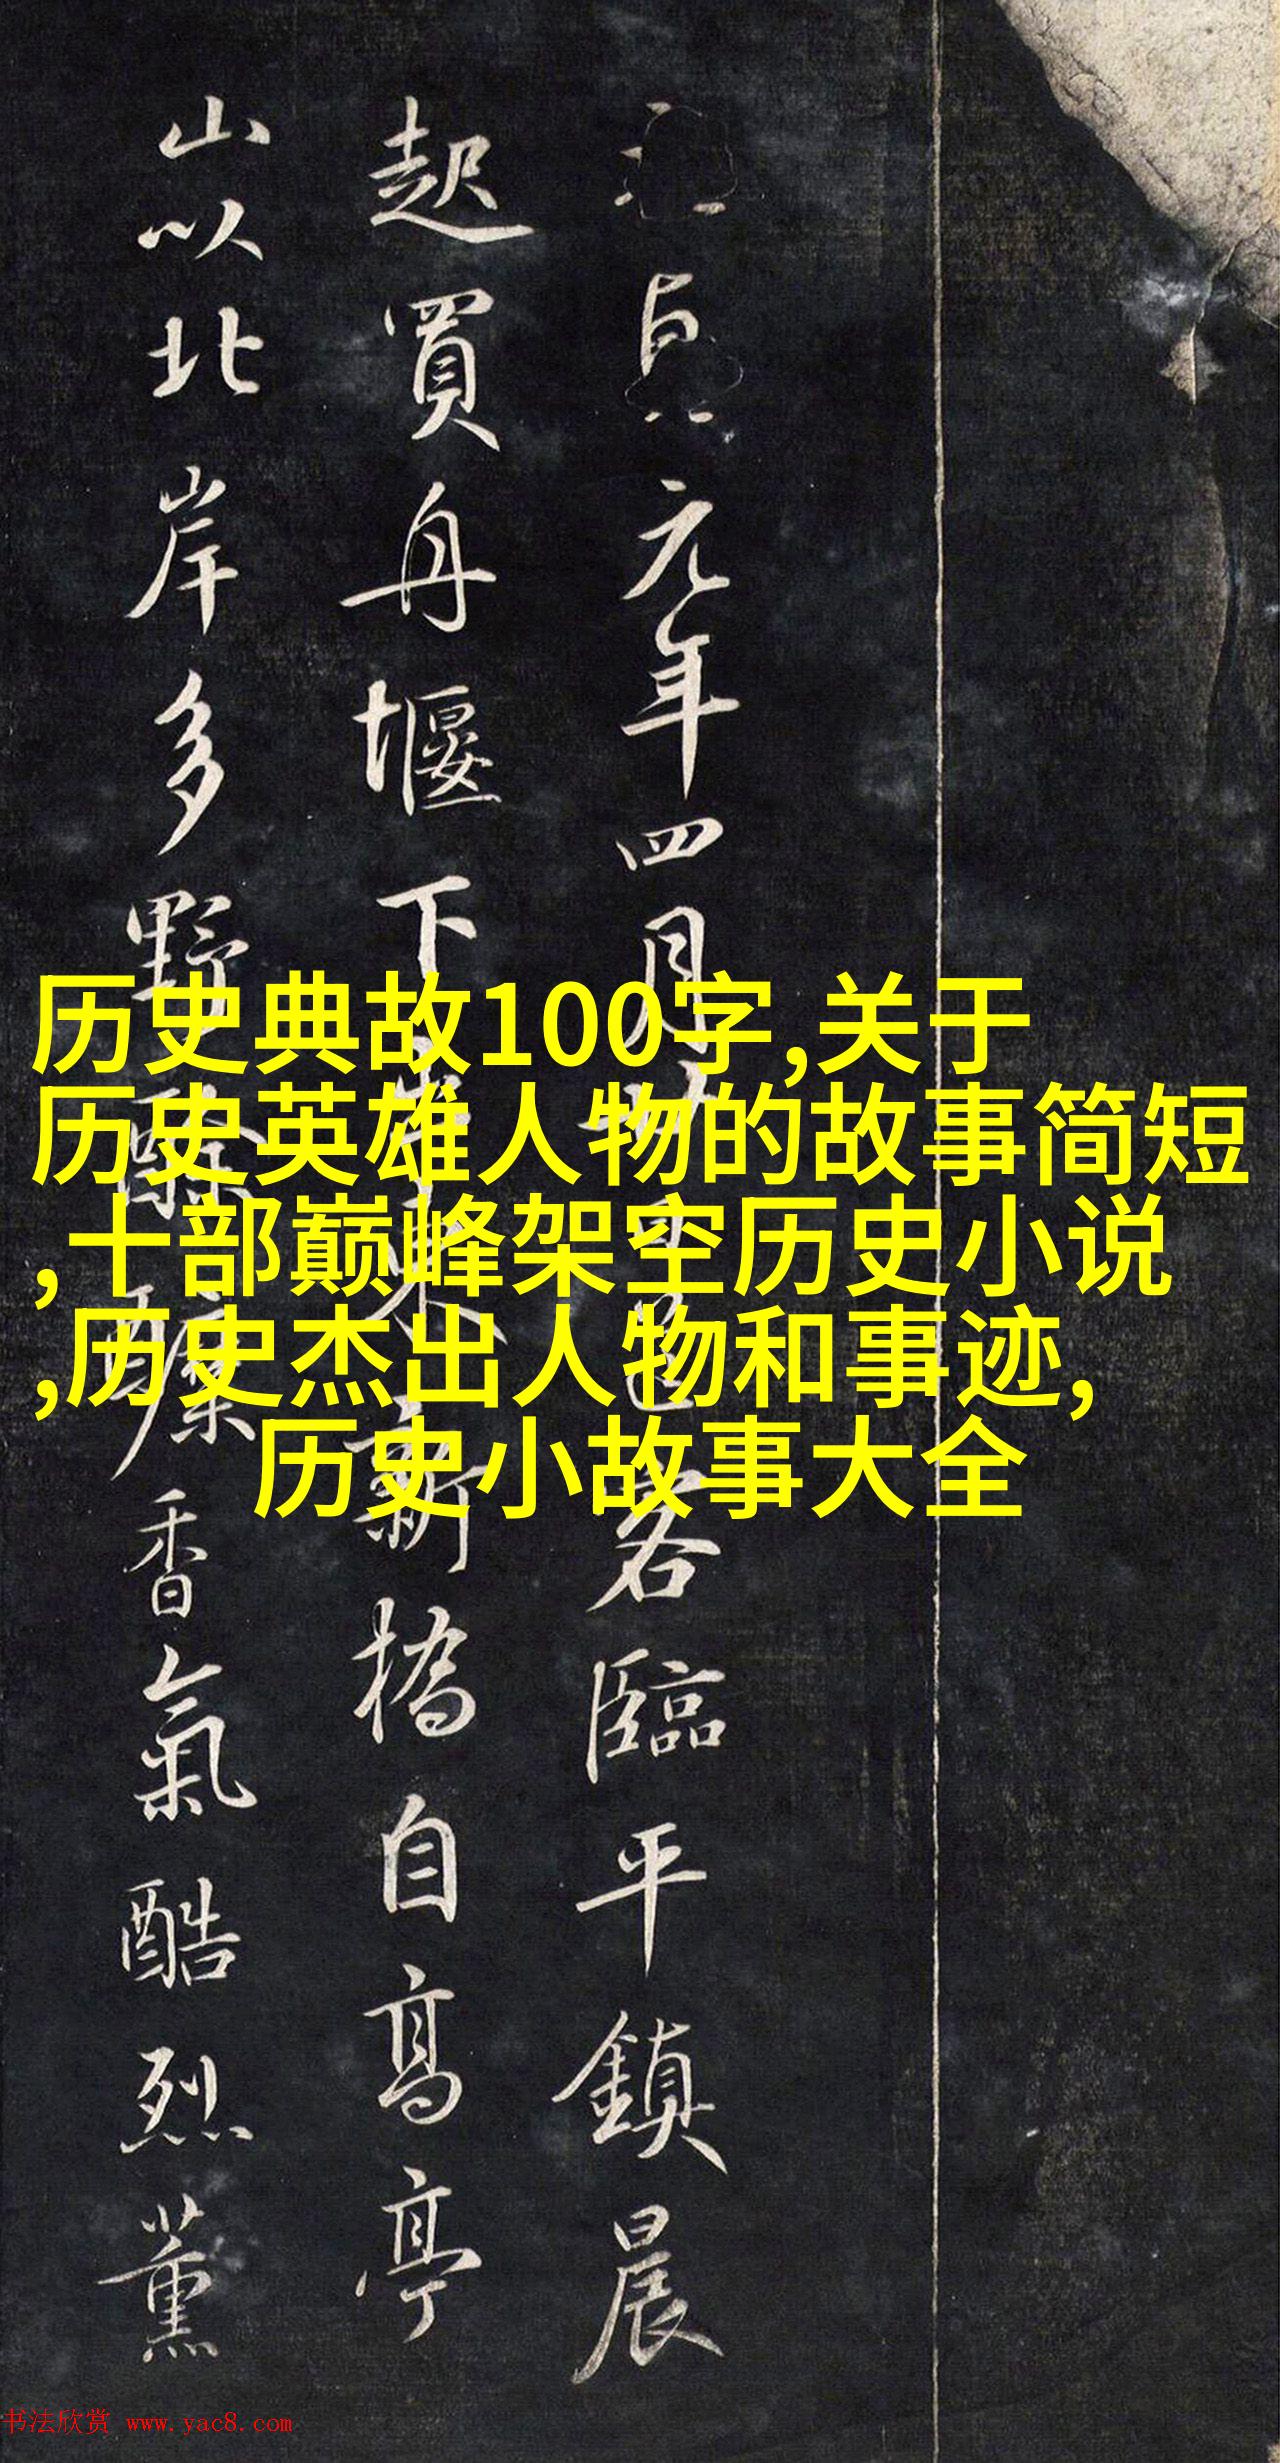 元年四月
臨平鎮晨
起買舟堰下
新橋自高亭
山以北岸多野
香氣酷烈薰
历史典故100字,关于
历史英雄人物的故事简短
,十部巅峰架空历史小说
,历史杰出人物和事迹,
历史小故事大全
书法欣赏 www.yac8.com